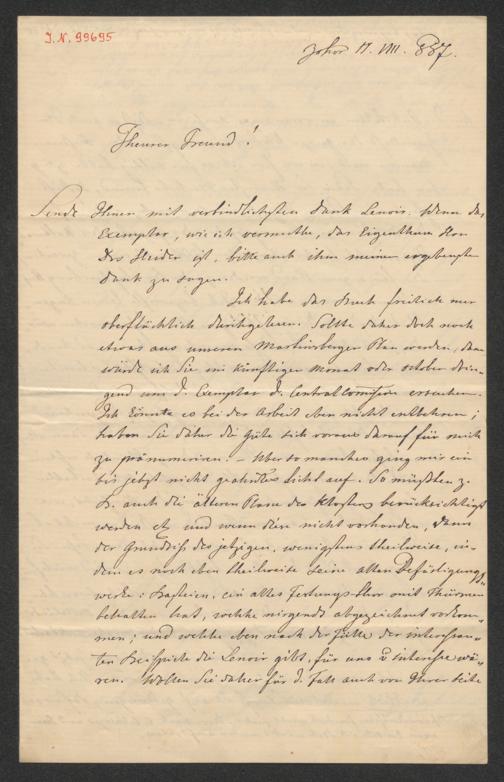 J.N. 99695
Johor 17. VIII. 887.
Theurer Freund!
Sende Ihnen mit verbindlichstem Dank Lenoir. Wenn das
Exemplar, wie ich vermuthe, das Eigenthum Hrn
Drs Heider ist, bitte auch ihm meinen ergebensten
Dank zu sagen.
Ich habe das Buch freilich nur
oberflächlich durchgesehen. Sollte daher doch noch
etwas aus unserem Martinsberger Plan werden, dann
würde ich Sie im künftigen Monat oder October drin-
gend um d. Exemplar d. Central Comission ersuchen.
Ich könnte es bei der Arbeit eben nicht entbehren;
haben Sie daher die Güte sich voraus darauf für mich
zu pränumeriren! – Über so manches ging mir ein
bis jetzt nicht geahntes Licht auf. So müßten z.
B. auch die älteren Plane des Klosters berücksichtigt
werden etc und wenn diese nicht vorhanden, dann
der Grundriß des jetzigen, wenigstens theilweise, in-
dem es noch eben theilweise seine alten Befestigungs-
werke: Basteien, ein altes Festungs-Thor mit Thürmen
behalten hat, welche nirgends abgezeichnet vorkom-
men; und welche eben nach der Fülle der interessan-
ten Beispiele die Lenoir gibt, für uns v interesse wä-
ren. Wollen Sie daher für d. Fall auch von Ihrer Seite